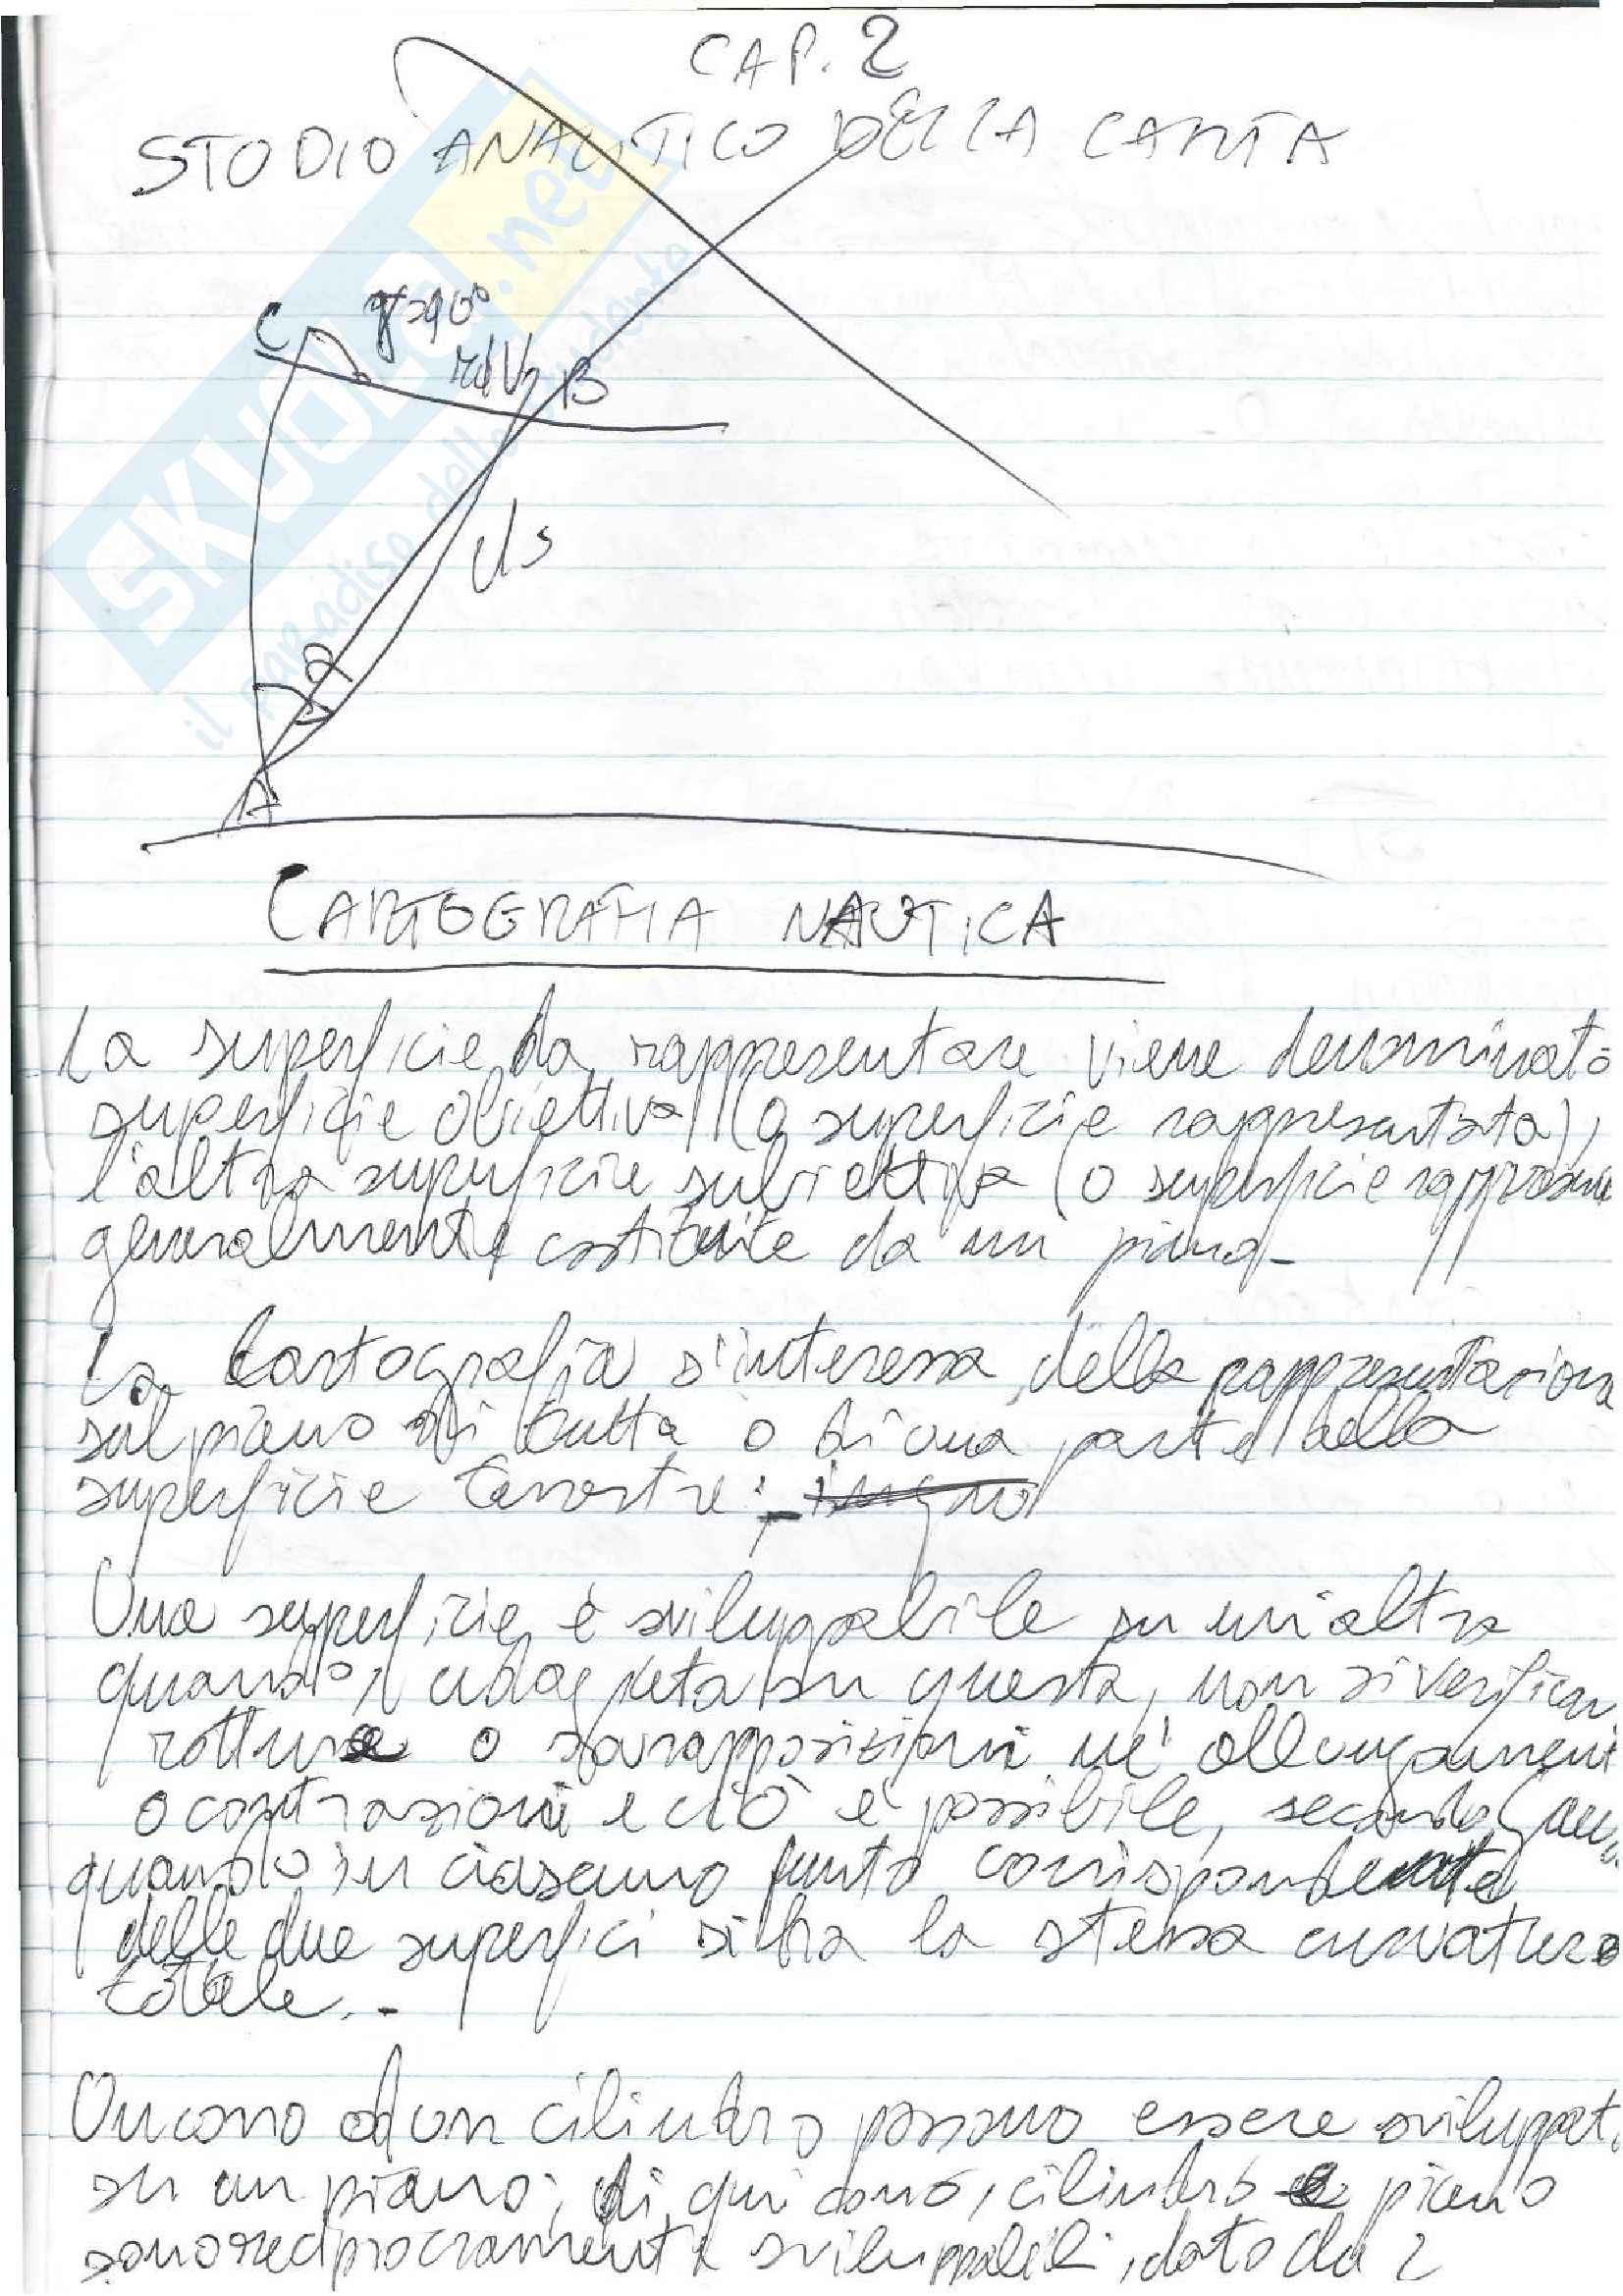 CAP. 2
STUDIO ANALITICO DELLA CARTA
SKUOLA.net
il paradiso dello studente
C
γ>90°
rdV
B
ds
α
A
CARTOGRAFIA NAUTICA
La superficie da rappresentare viene denominata
superficie obiettiva (o superficie rappresentata),
l'altra superficie subiettiva (o superficie
generalmente costituita da un piano-
La Cartografia s'interessa della rappresentazione
sul piano di tutta o di una parte della
superficie terrestre;
Una superficie è sviluppabile su un'altra
quando, adagiata su questa, non si verifican
rotture o sovrapposizioni nè allungamenti
o contrazioni e ciò è possibile, secondo
quando in ciascuno punto corrispondente
delle due superfici si ha la stessa curvatura
totale.-
Un cono ed un cilindro possono essere sviluppati
su un piano; di qui cono, cilindro e piano
sono reciprocamente sviluppabili, dato da 2